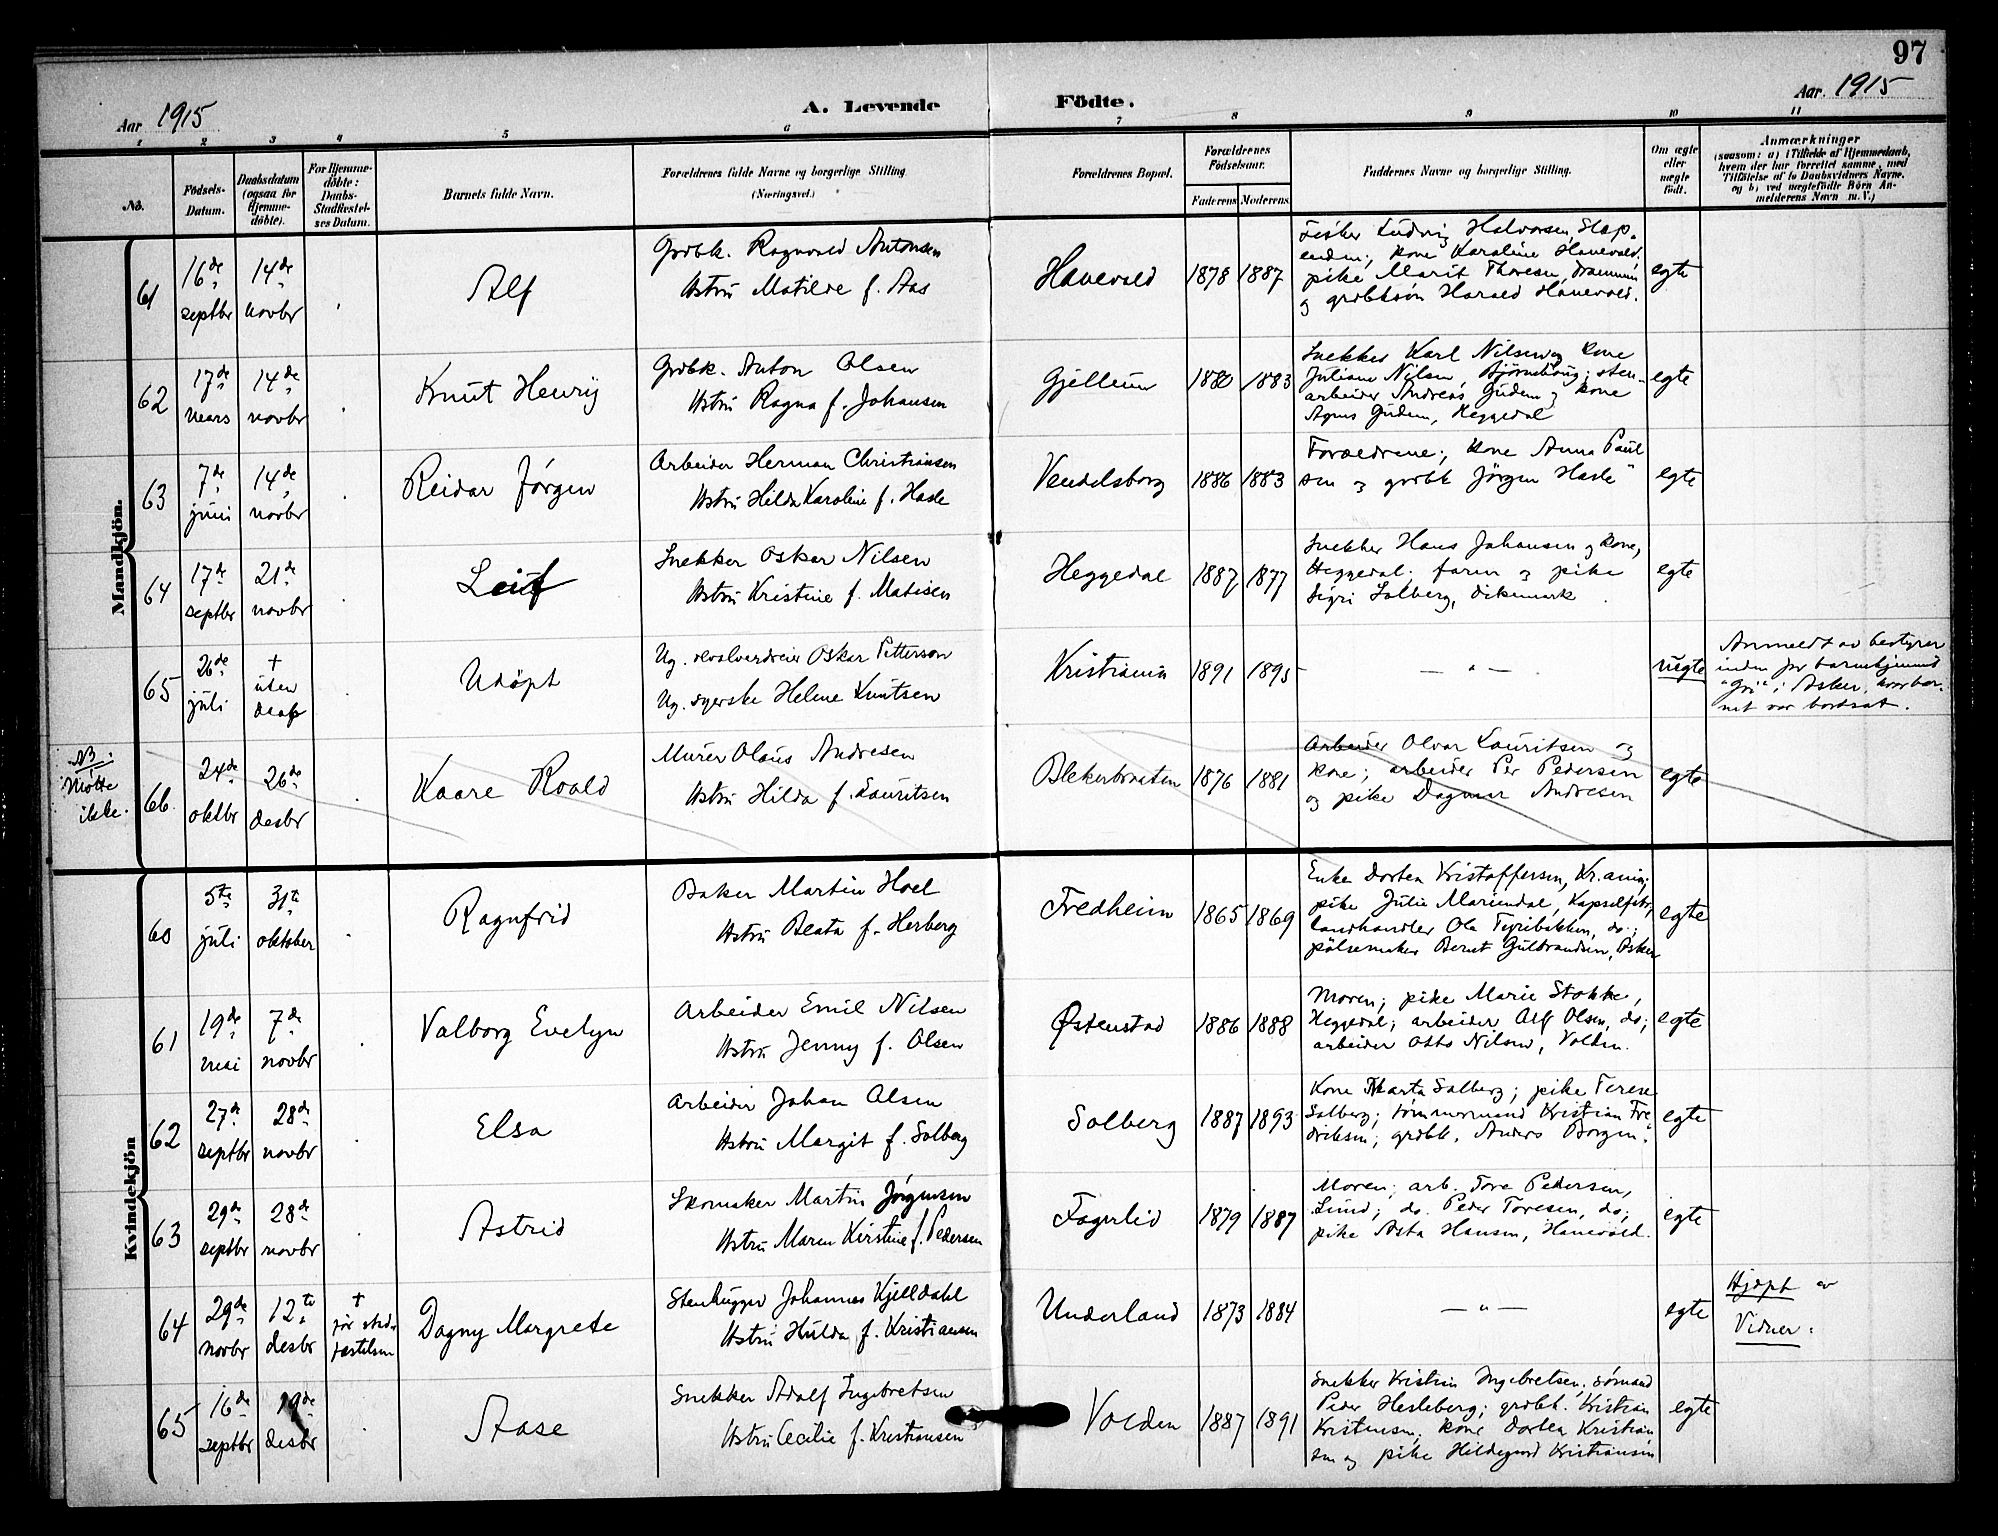 97
Aar 1915
A. Levende Födte.
Aar. 1915
1 2 3 4 5 6 7 8 9 10 11
No.
Födsels-Datum.
Daabsdatum (ogsaa for Hjemmedöbte).
For Hjemmedöbte: Daabs-Stadfæstelses Datum.
Barnets fulde Navn.
Forældrenes fulde Navne og borgerlige Stilling (Næringsvei.)
Forældrenes Bopæl.
Forældrenes Födselsaar.
Faderens Moderens
Faddernes Navne og borgerlige Stilling.
Om ægte eller uægte födt.
Anmærkninger
(saasom: a) i Tilfælde af Hjemmedaab, hvem der har forrettet samme, med Tilföielse af to Daabsvidners Navne. og b) ved uægtefödte Börn Anmelderens Navn m. V.)
Mandkjön.
61
16de septbr
14de novbr
Alf
Grdbk. Ragnvald Antonsen
Hstru Matilde f. Aas
Hanevold
1878 1887
Fisker Ludvig Halvorsen, Slep-
enden; kone Karoline Hanevold;
pike Marit Thoresen, Drammen,
og grdbksøn Harald Hanevold.
egte
62
17de mars
14de novbr
Knut Henrij
Grdbk. Anton Olsen
Hstru Ragna f. Johansen
Gjellum
1880 1883
Snekker Karl Nilsen og kone
Juliane Nilsen, Bjørnehaug; sten-
arbeider Andreas Gudem og kone
Agnes Gudem, Heggedal
egte
63
7de juni
14de novbr
Reidar Jørgen
Arbeider Herman Christiansen
Hstru Hilda Karoline f. Hasle
Vendelsborg
1886 1883
Foræeldrene; kone Anna Paul
sen og grdbk Jörgen Hasle
egte
64
17de septbr
21de novbr
Leif
Snekker Oskar Nilsen
Hstru Kristine f. Matisen
Heggedal
1887 1877
Snekker Hans Johansen og kone,
Heggedal; faren og pike
Sigri Solberg, Dikemark.
egte
65
26de juli
† uten daap
Udöpt
Ug. Oskar Petterson
Ug. syerske Helene Knutsen
Kristiania
1891 1895
— " —
uegte
Anmeldt av bestyrer
inden for barnehjemmet
i Asker, hvor bar-
net var bortsat.
NB. Møtte ikke.
66.
24de oktbr
26de desbr
Kaare Roald
Murer Olaus Andresen
Hstru Hilda f. Lauritsen
Blekerbraaten
1876 1881
Arbeider Olvar Lauritsen og
kone; arbeider Per Pedersen
og pike Dagmar Andresen
egte
Kvindekjön
60
5te juli
31te oktober
Ragnfrid
Baker Martin Hoel
Hstru Beata f. Herberg
Fredheim
1865 1869
Enke Dorten Kristoffersen, Kr.ania;
pike Julie Mariendal, Kapselfabr.,
landhandler Ola Tyribakken, do.;
pölsemaker Bernt Gulbrandsen, Asker
egte
61
19de mai
7de novbr
Valborg Evelyn
Arbeider Emil Nilsen
Hstru Jenny f. Olsen
Østenstad
1886 1888
Moren; pike Marie Stokke,
Heggedal; arbeider Alf Olsen, do;
arbeider Otto Nilsen, Volden.
egte
62
27de septbr
28de novbr
Elsa
Arbeider Johan Olsen
Hstru Margit f. Solberg
Solberg
1887 1893
Kone Marta Solberg; pike Terese
Solberg; tømmermand Kristian Fre
driksen; grdbk. Anders Borgen.
egte
63
29de septbr
28de novbr
Astrid
Skomaker Martin Jørgensen
Hstru Maren Kirstine f. Pedersen
Fagerlid
1879 1887
Moren; arb. Tore Pedersen,
Lund; do. Peder Toresen, do;
pike Asta Hansen, Hanevold.
egte
64
29de novbr
12te desbr
† før stadfæstelsen
Dagny Margrete
Stenhugger Johannes Kjelldahl
Hstru Hulda f. Kristiansen
Underland
1873 1884
— " —
egte
Hjdpt av
Vidner.
65
16de septbr
19de desbr
Aase
Snekker Adolf Ingebretsen
Hstru Cecilie f. Kristiansen
Volden
1887 1891
Snekker Kristian Ingebretsen; sømand
Peder Hesleberg; grdbk. Kristian
Kristensen; kone Dorten Kristian
sen og pike Hildegard Kristiansen
egte